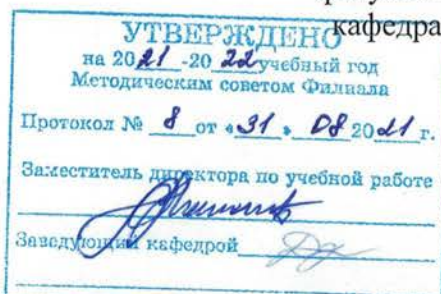 кафедра
УТВЕРЖДЕНО
на 2021-2022 учебный год
Методическим советом Филиала
Протокол № 8 от «31» 08 2021 г.
Заместитель директора по учебной работе
Заведующий кафедрой